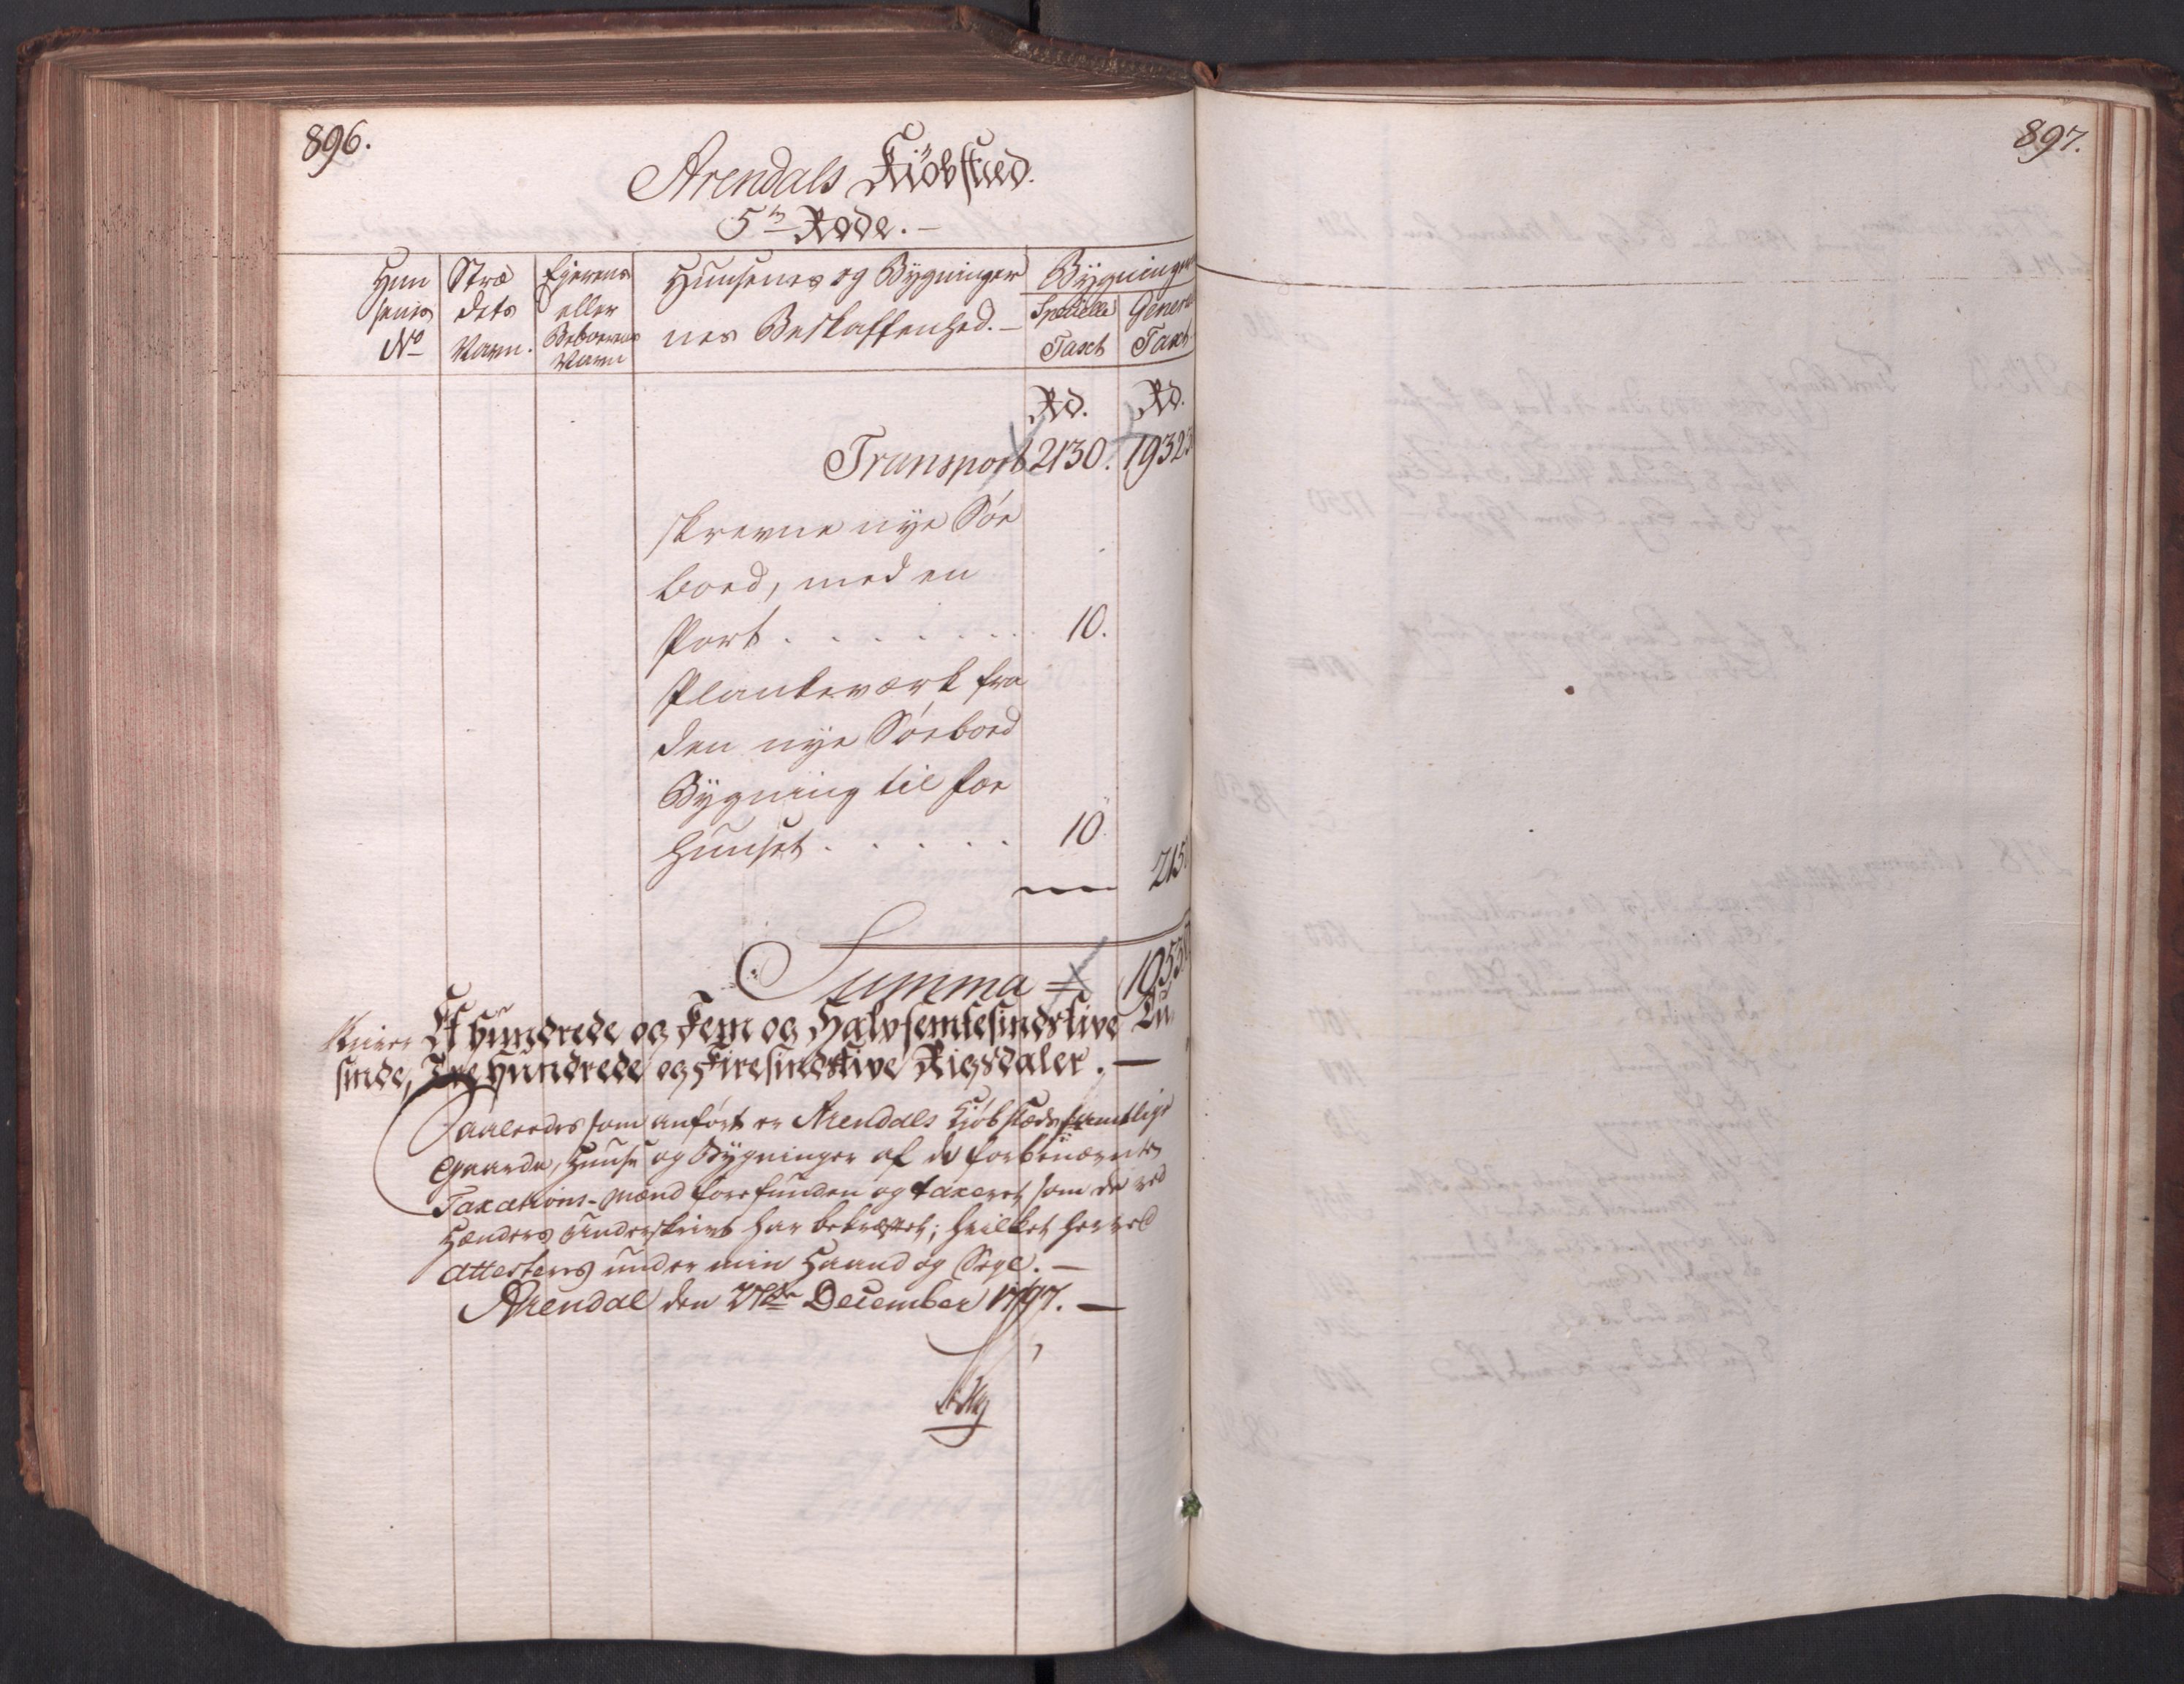 896.
Arendals Kiöbstæd.
5te Rode.
Huu
senes
No
Stræ
dets
Navn.
Ejerens
eller
Beboerens
Navn
Huusenes og Bÿgninger
nes Beskaffenhed.
Bÿgninger
Specielle
Taxt
General
Taxt
Rd. Rd.
Transport 2130. 1932
skrevne nÿe Søe
boed, med en
Port . . . . . . . . 10.
Plankeværk fra
den nÿe Søeboed
Bÿgning til for
Huuset . . . . . 10
215
Summa 1953
Et hundrede og Fem og Halvfemtesindstive Tu
sinde, Tre Hundrede og Firesindstive Rigsdaler.
Saaledes som anført er Arendals Kiøbstæds samtlige
Gaarde, Huuse og Bÿgninger af de forbenævnte
Taxations-Mænd forefunden og taxeret som de ved
Hænders Underskrivt har bekræftet; hvilket herved
attesteres under min Haand og Segl.
Arendal den 27de December 1797.
897.